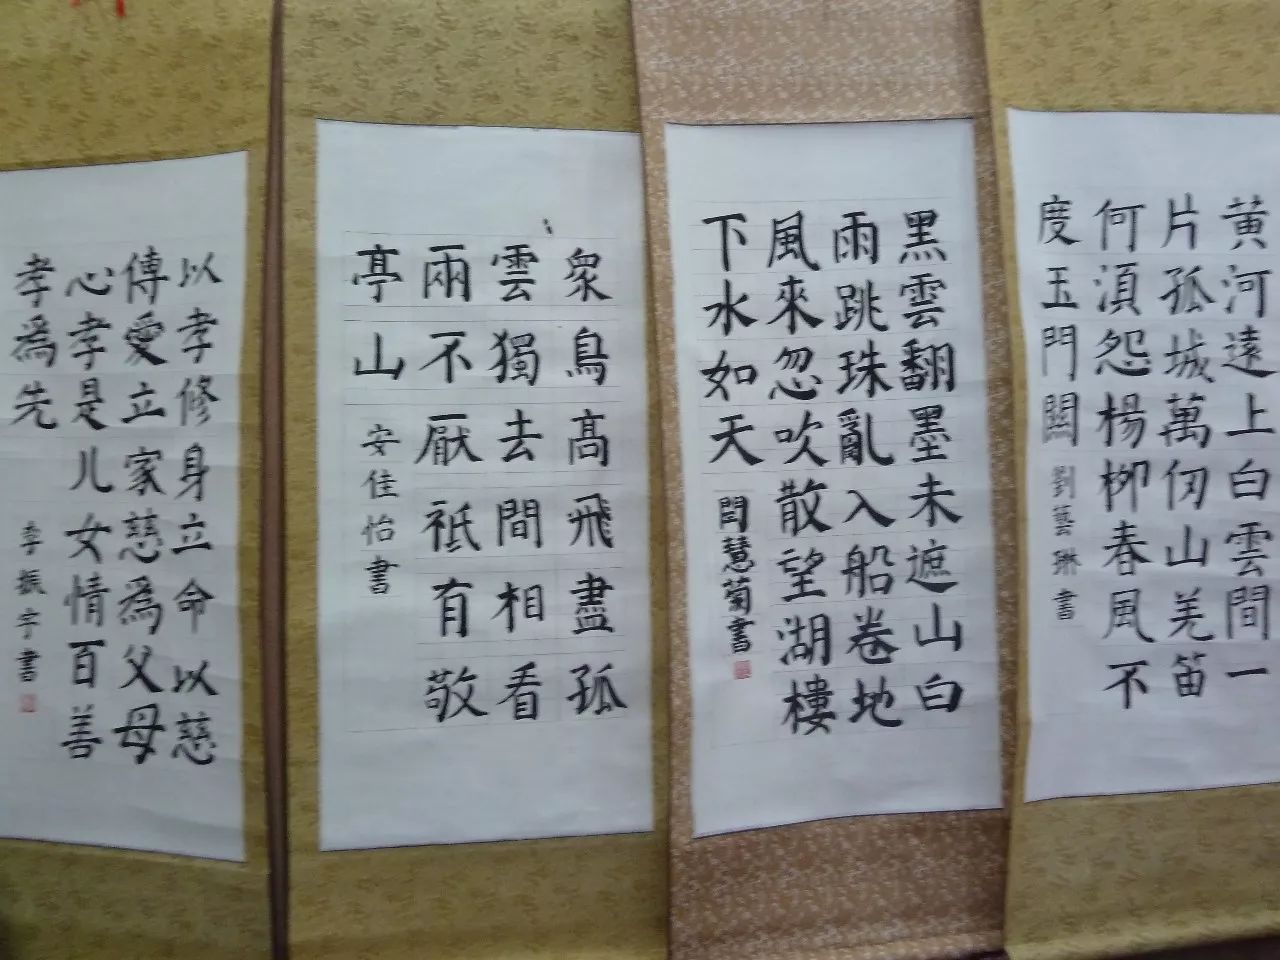 黄河遠上白雲間一
片孤城萬仞山羌笛
何湏怨楊栁春風不
度玉門關
劉藝琳書
黑雲翻墨未遮山白
雨跳珠亂入船卷地
風來忽吹散望湖樓
下水如天
閆慧菊書
衆鳥髙飛盡孤
雲獨去間相看
兩不厭祗有敬
亭山
安佳怡書
以孝修身立命以慈
傳愛立家慈爲父母
心孝是儿女情百善
孝爲先
李振宇書